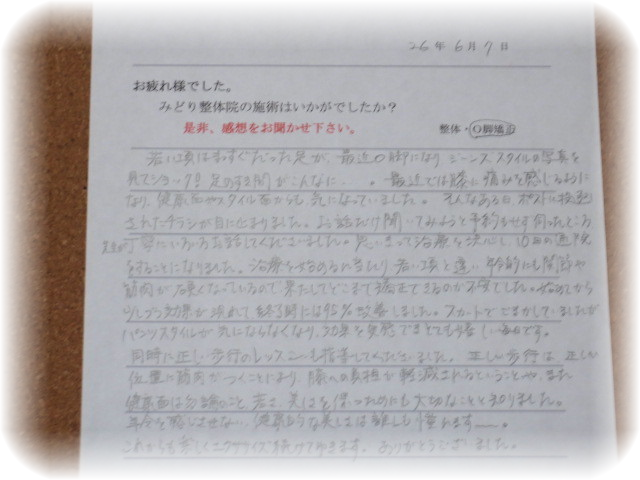 26年 6月 7日
お疲れ様でした。
みどり整体院の施術はいかがでしたか？
是非、感想をお聞かせ下さい。
整体・O脚矯正
若い頃はまっすぐだった足が、最近O脚になり ジーンズスタイルの写真を
見てショック! 足のすき間がこんなに…。最近では膝に痛みを感じるように
なり、健康面やスタイル面からも気になっていました。そんなある日、ポストに投函
されたチラシが目に止まりました。お話だけ聞いてみようと予約もせず伺ったところ
丁寧にいろいろお話してくださいました。思いきって治療を決心し、10回の通院
をすることになりました。治療を始めるに当たり 若い頃と違い 年齢的にも関節や
筋肉が硬くなっているので 果たしてどこまで矯正できるのか不安でした。始めてから
少しづつ効果が現れて 終了時には95%改善しました。スカートでごまかしていましたが
パンツスタイルが気にならなくなり、効果を実感できとても嬉しい毎日です。
同時に正しい歩行のレッスンも指導してくださいました。正しい歩行は、正しい
位置に筋肉がつくことにより、膝への負担が軽減されるということや、また
健康面は勿論のこと、若さ、美しさを保つためにも大切なことと知りました。
年令を感じさせない、健康的な美しさは誰しも憧れます〜。
これからも楽しくエクササイズ続けて行きます。ありがとうございました。